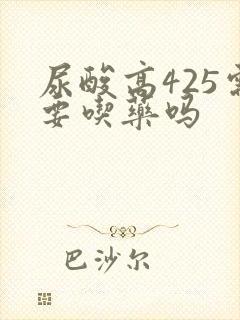 尿酸高425需
要喫藥吗
巴沙尔